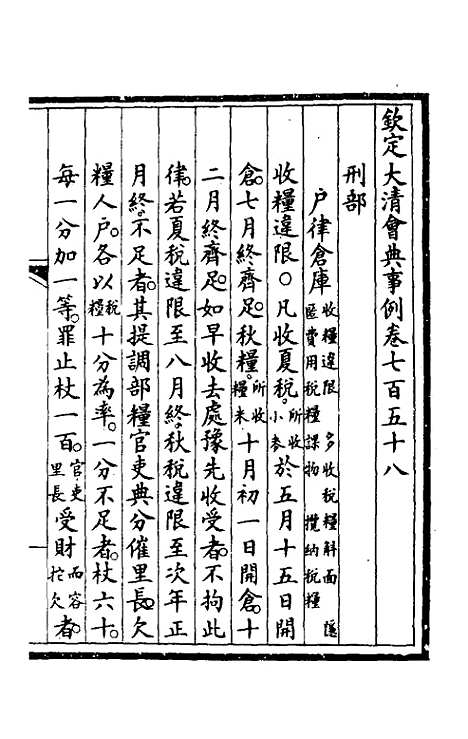 欽定大清會典事例卷七百五十八
刑部
戶律倉庫 收糧違限 多收稅糧斛面 隱匿費用稅糧課物 攬納稅糧
收糧違限○凡收夏稅。所收小麥於五月十五日開
倉。七月終齊足。秋糧。所收糧米十月初一日開倉。十
二月終齊足。如早收去處豫先收受者。不拘此
律。若夏稅違限至八月終。秋稅違限至次年正
月終。不足者。其提調部糧官吏典分催里長。欠
糧人戶。各以稅糧十分為率。一分不足者。杖六十。
每一分加一等。罪止杖一百。官吏里長受財而容拕欠者。